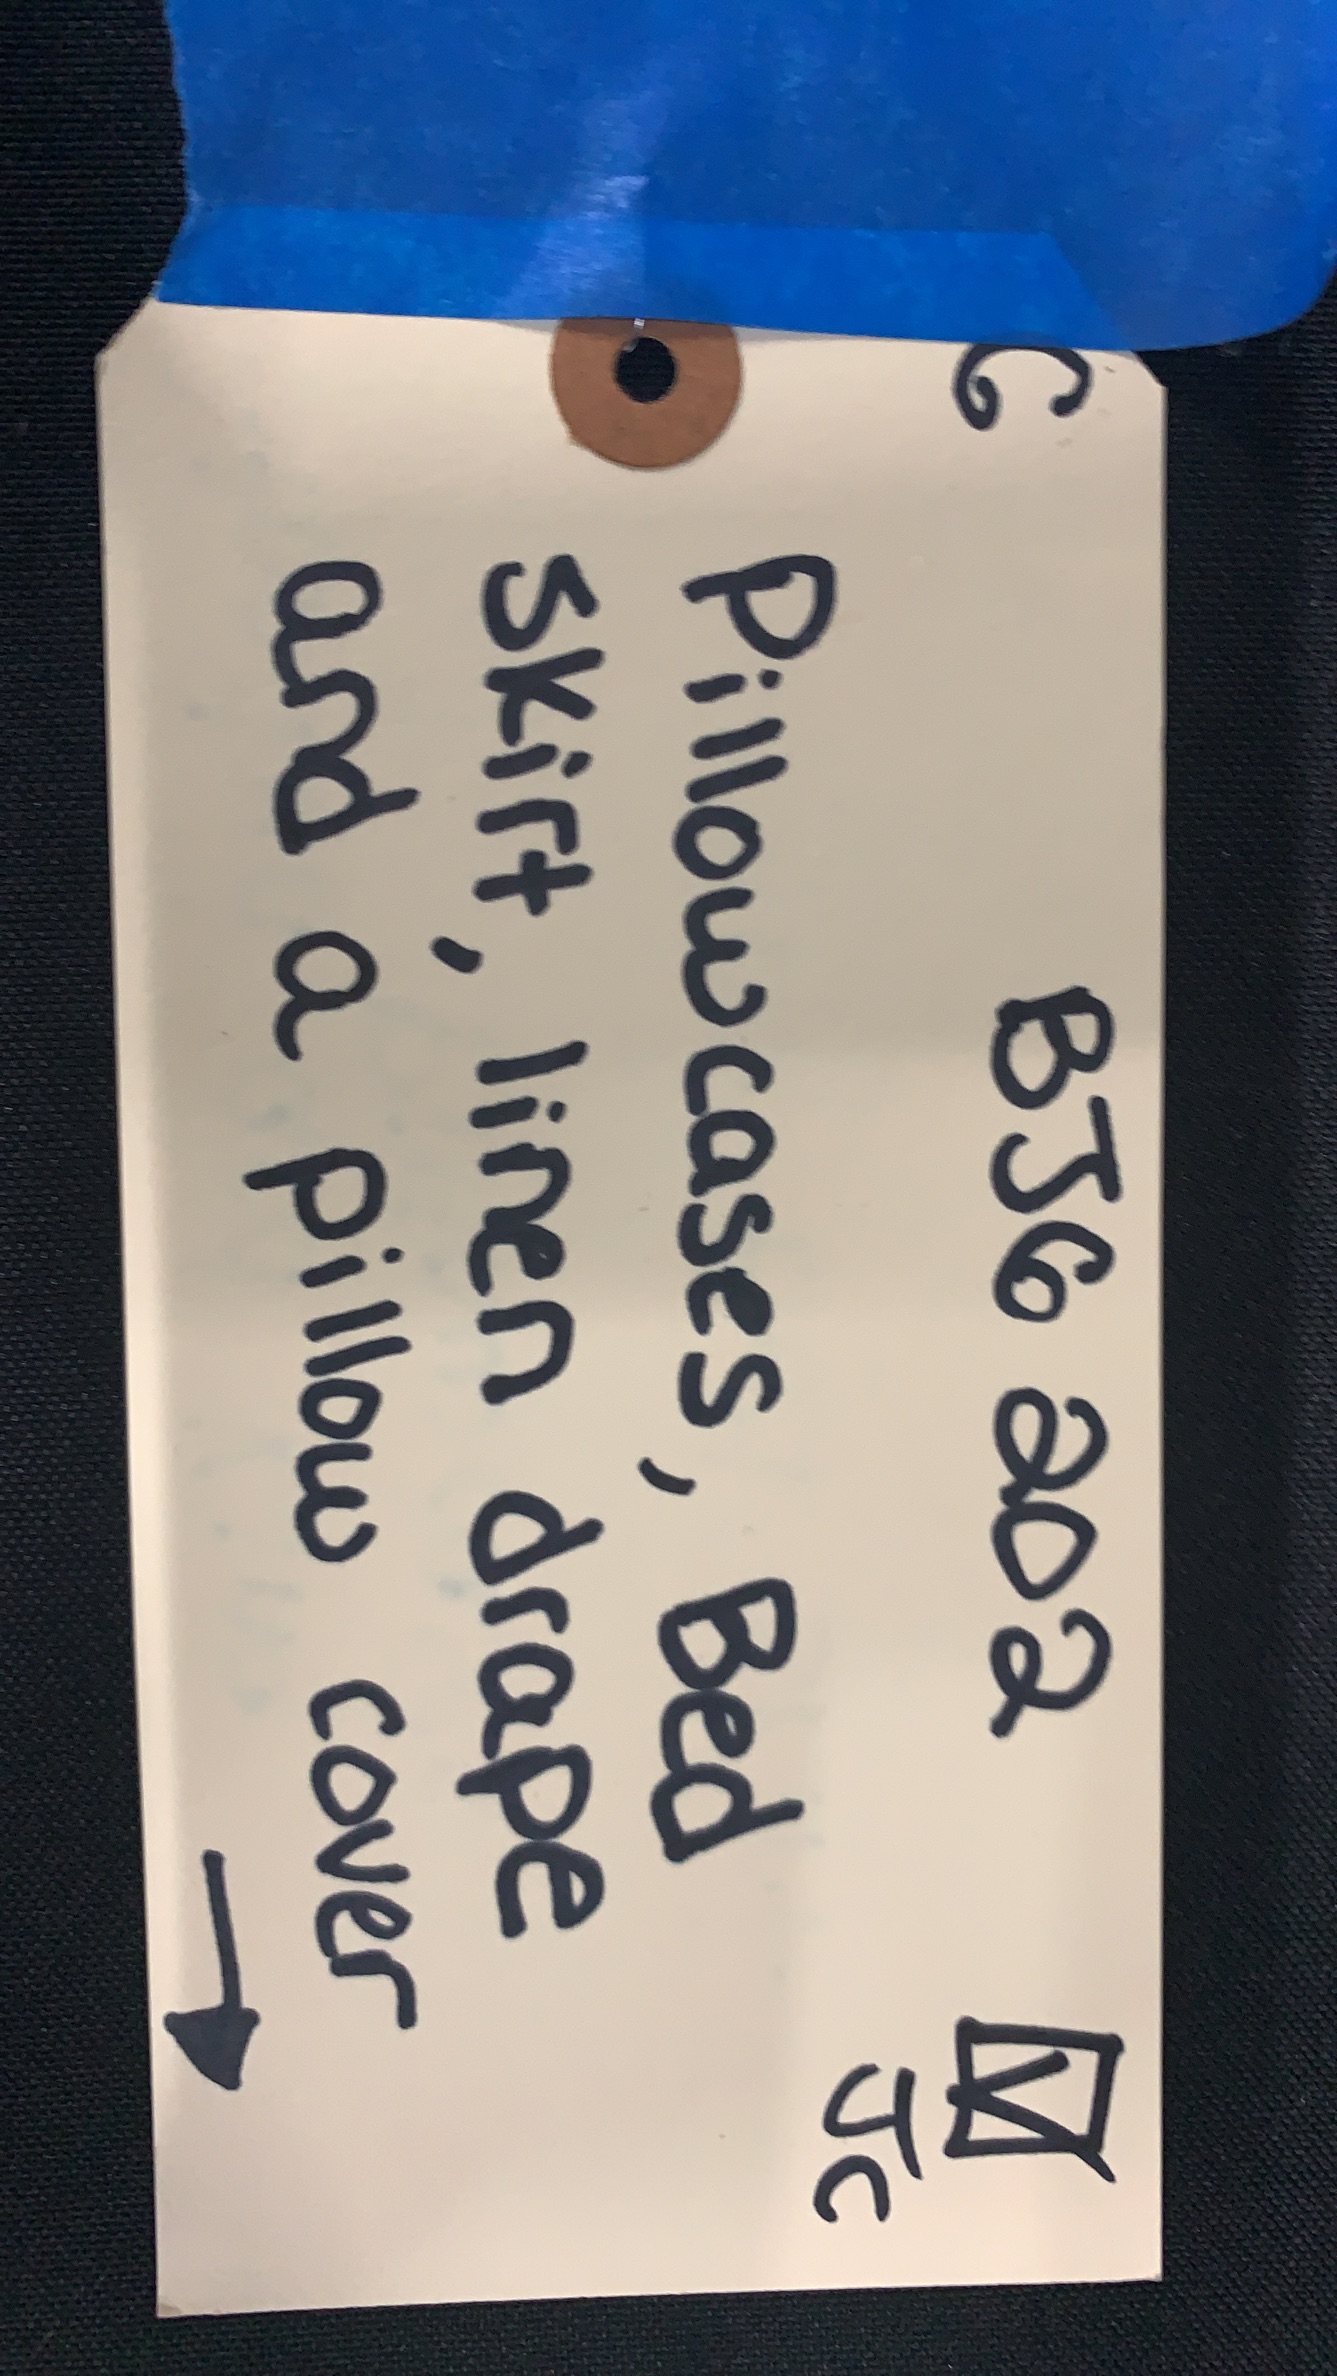 G BJG 202
JC
Pillowcases, Bed
skirt, linen drape
and a pillow cover